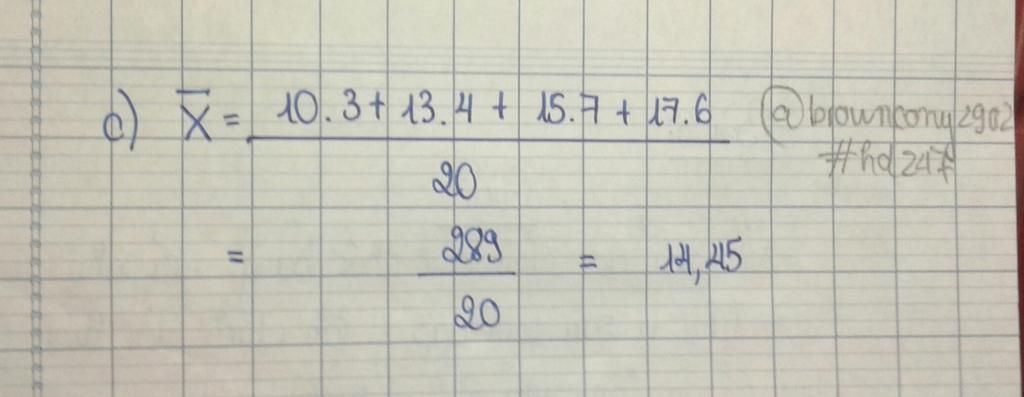 c) X̅ = 10.3 + 13.4 + 15.7 + 17.6 @browncony2902
20 #hd247
= 289 = 14,45
20